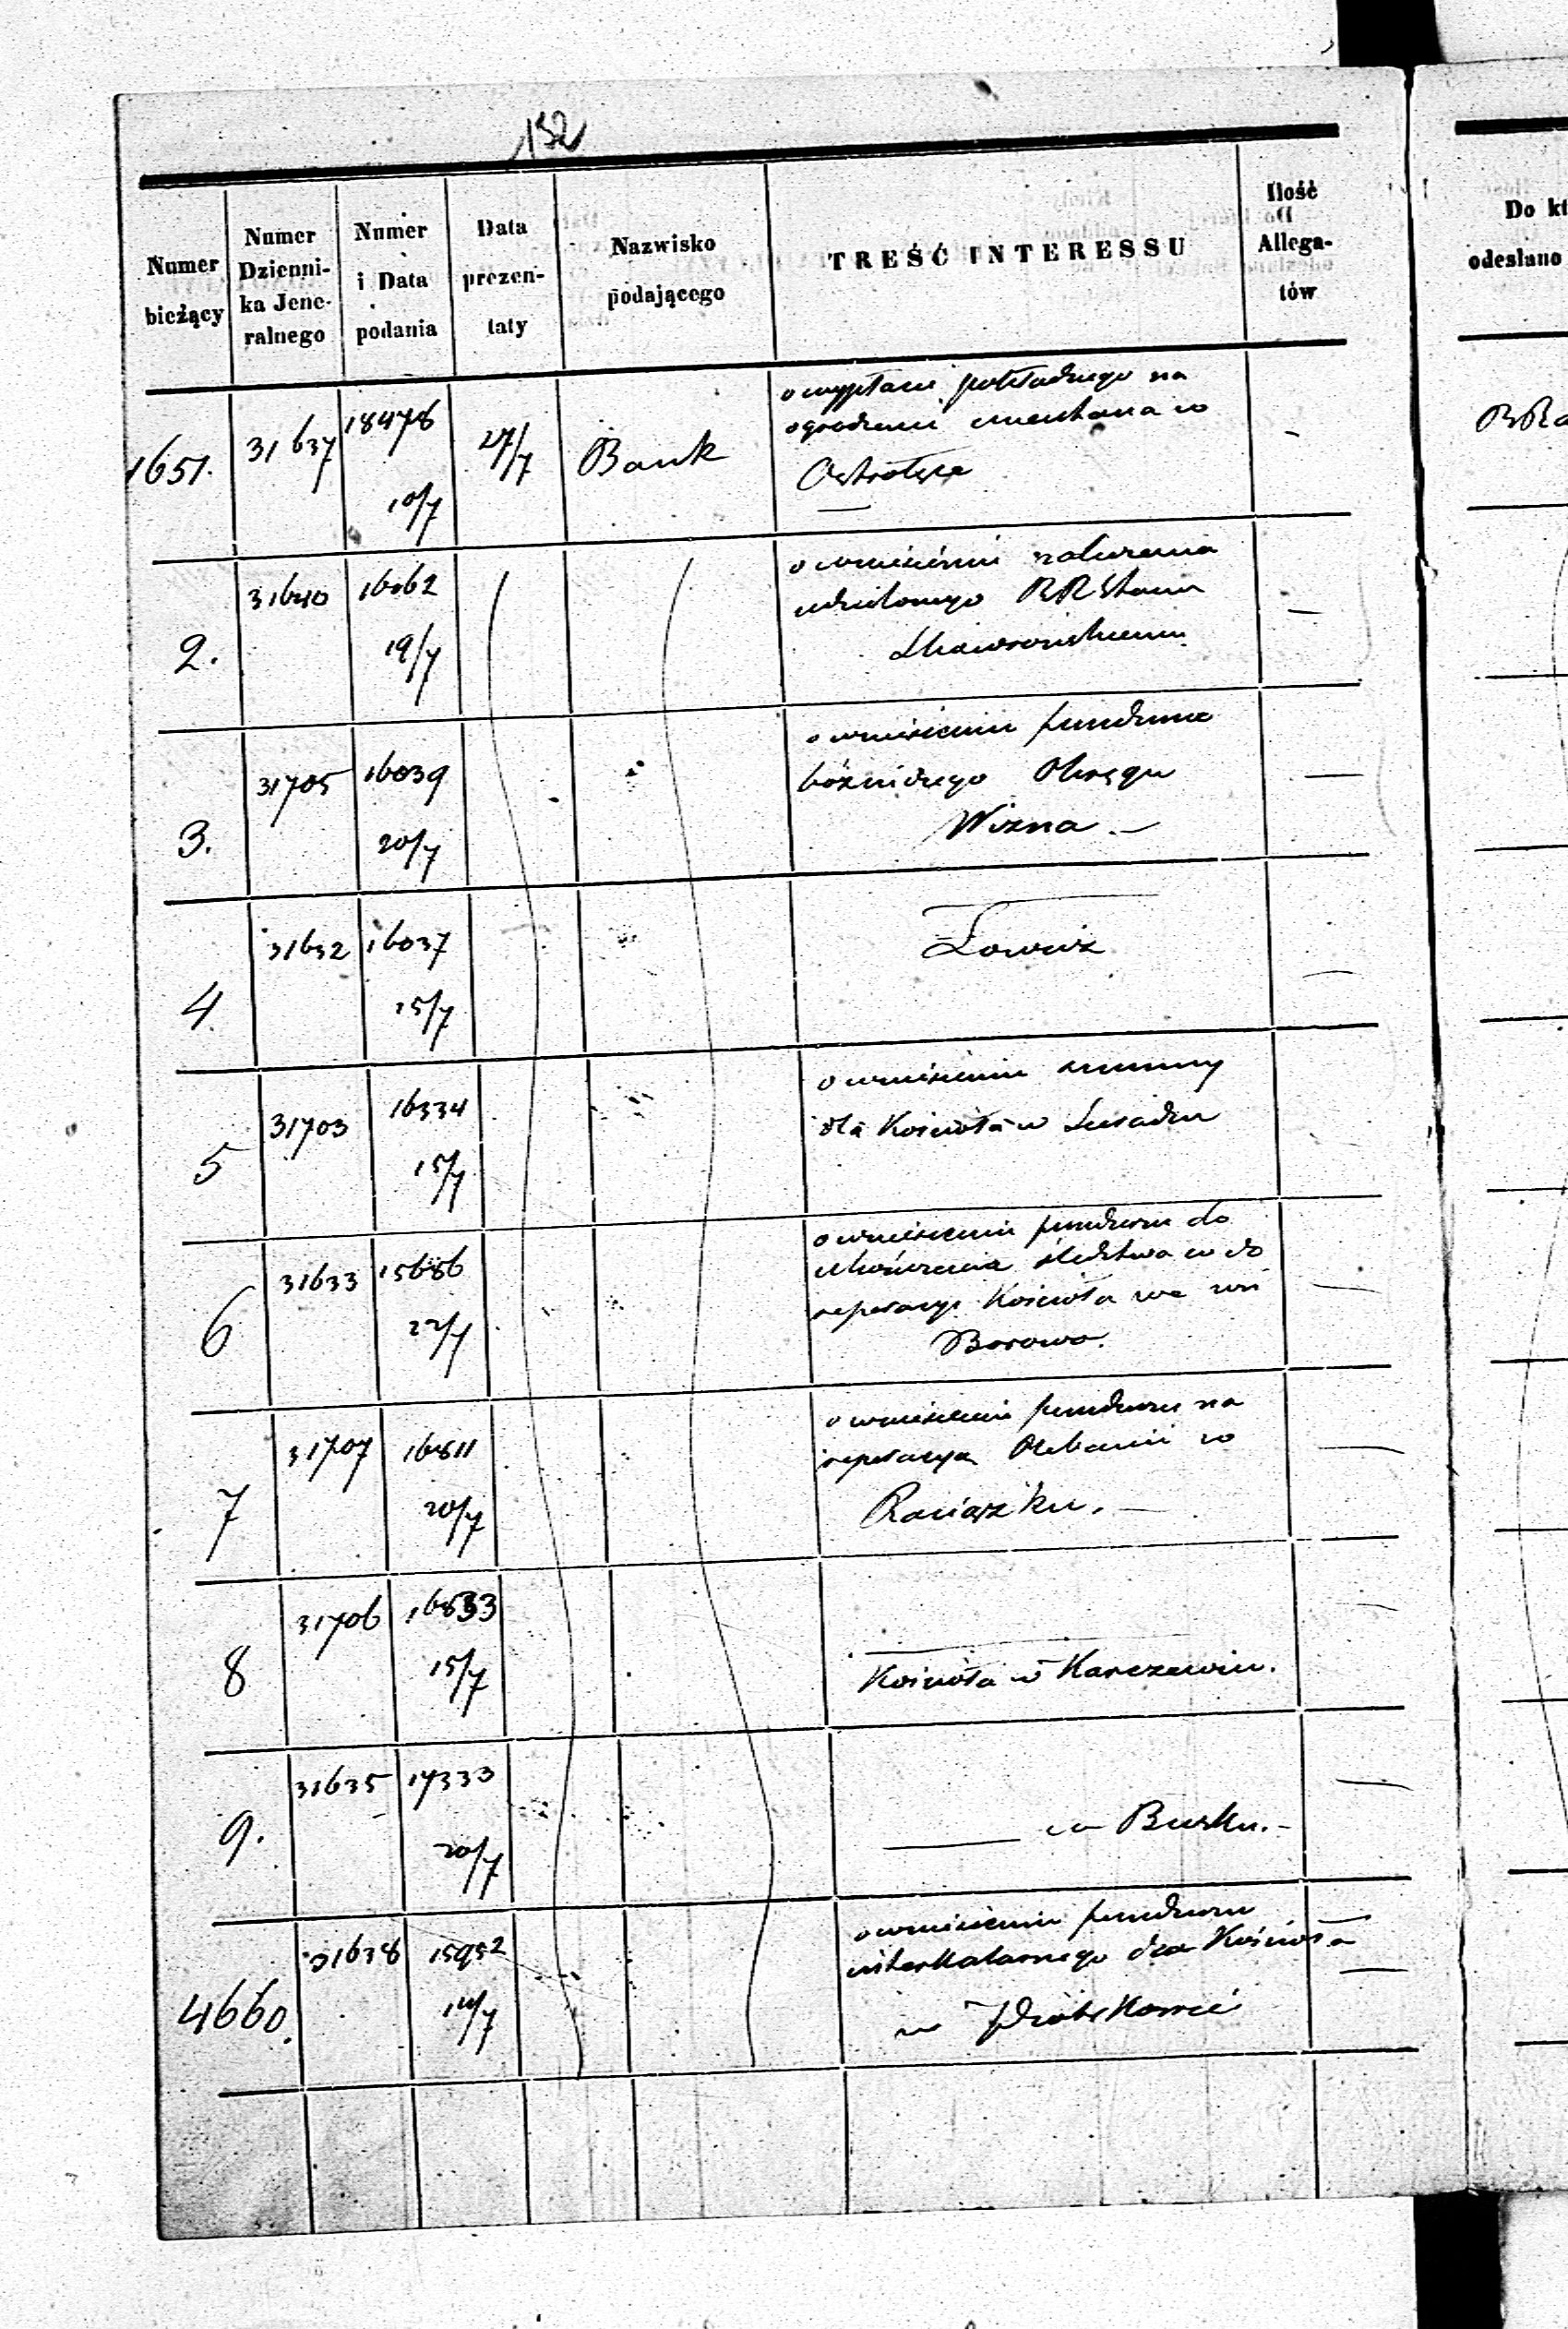 132
Numer bieżący
Numer Dzienni- ka Jene- ralnego
Numer i Data podania
Data prezen- taty
Nazwisko podającego
TREŚĆ INTERESSU
Ilość Allega- tów
Do
odesłano
1651. 31637 18478 10/7 27/7 Bank
o wypłacie na
ogrodzenie w
Ostrołęce
2. 31640 19/7
o wniesieniu
udzielonego
3. 31705 16039 20/7
o wniesieniu funduszu
bóżniczego Okręgu
Wizna. —
4. 31632 16037 15/7
Łowicz
5 31703 16334 15/7
o wniesieniu summy
dla Kościoła w
6 31633 15686 22/7
o wniesieniu funduszu do
ukończenia śledztwa co do
reperacyi Kościoła we wsi
Borowo.
7 31707 16811 20/7
o wniesienie funduszu na
reperacyą Plebanii w
Raciążku. —
8 31706 16833 15/7
Kościoła w Karczewiu.
9. 31635 17333 20/7
w Busku. —
4660. 31638 15952
o wniesienie funduszu
interkalarnego dla Kościoła
w